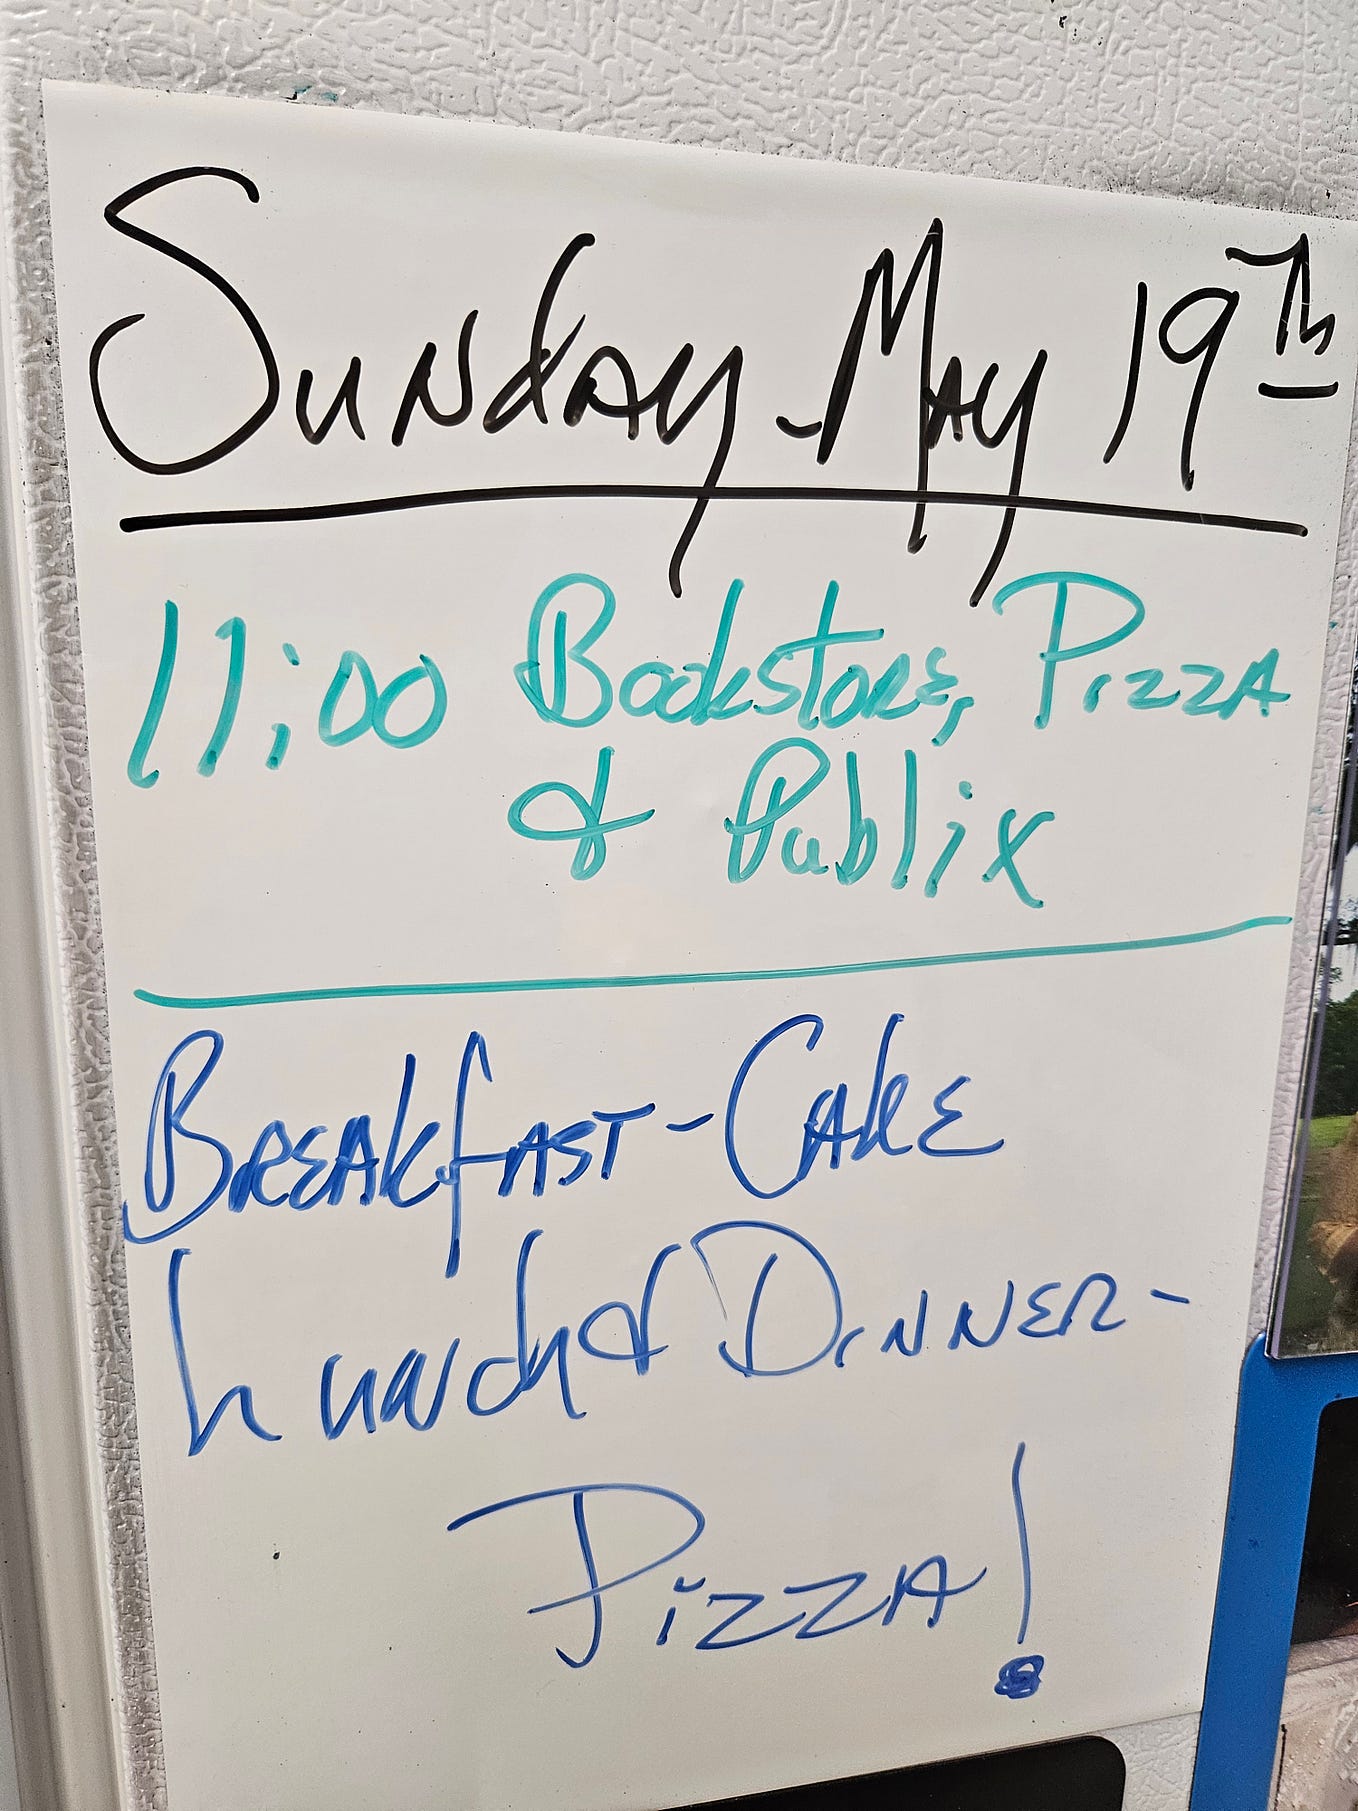 Sunday - May 19th
11:00 Bookstore, Pizza
& Publix
Breakfast - Cake
Lunch & Dinner -
Pizza!